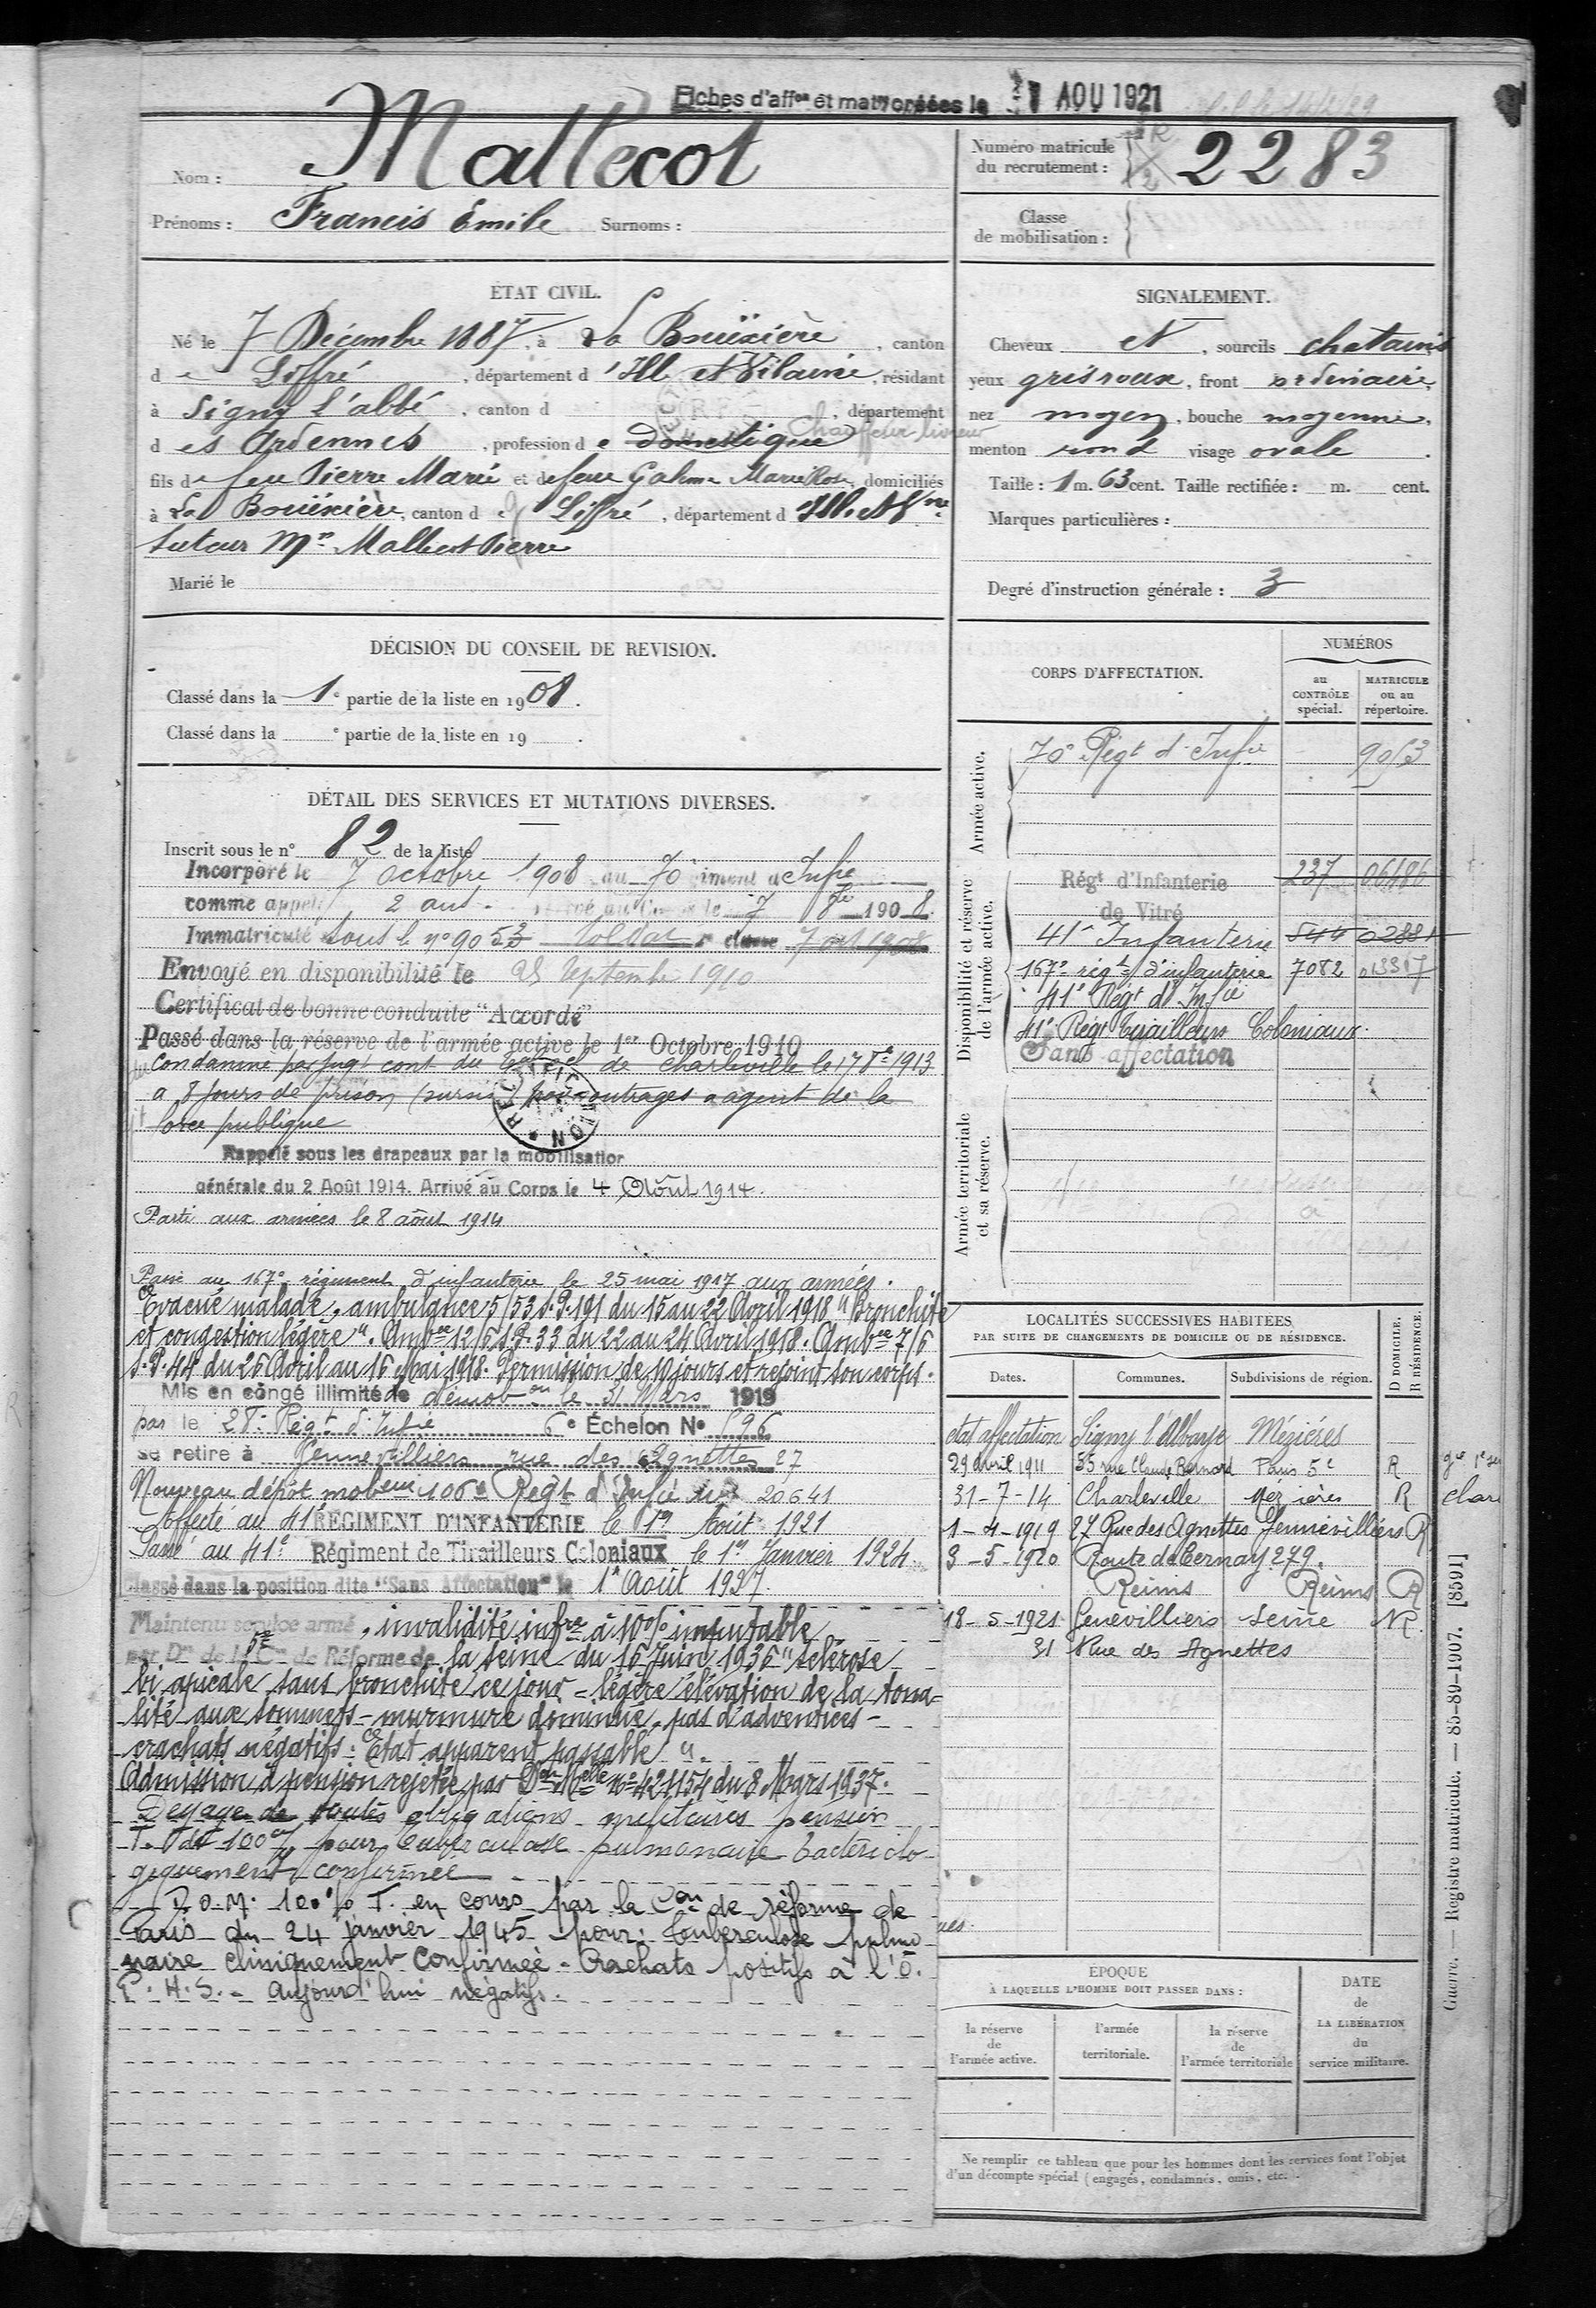 Fiches d'affon et matles créées le 1 AOU 1921
Nom : Mallecot
Prénoms : Francis Emile Surnoms :
Numéro matricule du recrutement : 2283
Classe de mobilisation :
ÉTAT CIVIL.
Né le 7 Décembre 1887, à La Bouëxière, canton
de Liffré, département d'Ille et Vilaine, résidant
à Signy l'abbé, canton d , département
des Ardennes, profession de domestique Chauffeur livreur
fils de feu Pierre Marie et de feue Marie Rose, domiciliés
à La Bouëxière, canton de Liffré, département d Ille et Vne
tuteur Mr Mallecot Pierre
Marié le
SIGNALEMENT.
Cheveux et, sourcils chatains
yeux gris roux, front ordinaire,
nez moyen, bouche moyenne,
menton rond visage ovale.
Taille : 1 m. 63 cent. Taille rectifiée : m. cent.
Marques particulières :
Degré d'instruction générale : 3
DÉCISION DU CONSEIL DE REVISION.
Classé dans la 1e partie de la liste en 1908.
Classé dans la e partie de la liste en 19 .
DÉTAIL DES SERVICES ET MUTATIONS DIVERSES.
Inscrit sous le n° 82 de la liste
Incorporé le 7 octobre 1908 au 70 iment d'Infie
comme appelé 2 ans. Arrivé au Corps le 7 8bre 1908.
Immatriculé sous le n° 9053 soldat de 7 oct 1908
Envoyé en disponibilité le 25 Septembre 1910
Certificat de bonne conduite "Accordé"
Passé dans la réserve de l'armée active le 1er Octobre 1910
Condamné par jugt cont du de Charleville le 17 1913
a 8 jours de prison (sursis) pour outrages a agent de la
force publique
Rappelé sous les drapeaux par la mobilisation
générale du 2 Août 1914. Arrivé au Corps le 4 Août 1914.
Parti aux armées le 8 août 1914
Passé au 167e régiment d'infanterie le 25 mai 1917 aux armées.
Evacué malade, ambulance 5/53 S.P. 191 du 15 au 22 Avril 1918 "Bronchite
et congestion légère". Ambce 12/6 S.P. 33 du 22 au 24 Avril 1918. Ambce 7/6
S.P. 44 du 26 Avril au 16 Mai 1918. Permission de 10 jours et rejoint son corps.
Mis en congé illimité de démobon le 31 Mars 1919
par le 28e Régt d'Infie 6e Échelon No 596
se retire à Gennevilliers rue des Agnettes 27
Nouveau dépôt mobeur 106e Régt d'Infie No 20641
Affecté au 41e RÉGIMENT D'INFANTERIE le 1er Août 1921
Passé au 41e Régiment de Tirailleurs Coloniaux le 1er Janvier 1924
Classé dans la position dite "Sans Affectation" le 1er Août 1927.
Maintenu service armé, invalidité infre à 10% imputable
par Don de la 5e Con de Réforme de la Seine du 16 Juin 1936 "sclérose
bi apicale sans bronchite ce jour - légère élévation de la tona=
lité aux sommets - murmure diminué, pas d'adventices -
crachats négatifs : Etat apparent passable".
Admission à pension rejetée par Don Mlle no 421154 du 8 Mars 1937.
Dégagé de toutes obligations militaires pension
T. de 100% pour Tuberculose pulmonaire bactériolo-
giquement confirmée
P.O.M. 100% T. en cours par la Con de réforme de
Paris du 24 janvier 1945 pour : Tuberculose pulmo
naire cliniquement confirmée - Crachats positifs à l'O.
P.H.S. - aujourd'hui négatifs.
CORPS D'AFFECTATION.
NUMÉROS
au CONTRÔLE spécial.
MATRICULE ou au répertoire.
Armée active.
70e Régt d'Infie 9053
Disponibilité et réserve de l'armée active.
Régt d'Infanterie de Vitré 237 06486
41e Infanterie 544 02881
167e régt d'infanterie 7082 013317
41e Régt d'Infie
41e Régt Tirailleurs Coloniaux
Sans affectation
Armée territoriale et sa réserve.
LOCALITÉS SUCCESSIVES HABITÉES
PAR SUITE DE CHANGEMENTS DE DOMICILE OU DE RÉSIDENCE.
Dates. Communes. Subdivisions de région. D DOMICILE. R RÉSIDENCE.
etat affectation Signy l'Abbaye Mézières
29 avril 1911 35 rue Claude Bernard Paris 5e R
31-7-14 Charleville Mezières R
1-4-1919 27 Rue des Agnettes Gennevilliers R
3-5-1920 Route de Cernay 279.
Reims Reims R
18-5-1921 Genevilliers Seine R
31 Rue des Agnettes
ÉPOQUE
À LAQUELLE L'HOMME DOIT PASSER DANS :
la réserve de l'armée active.
l'armée territoriale.
la réserve de l'armée territoriale
DATE de LA LIBÉRATION du service militaire.
Ne remplir ce tableau que pour les hommes dont les services font l'objet
d'un décompte spécial (engagés, condamnés, omis, etc.).
Guerre. — Registre matricule. — 85-89-1907. [8591]